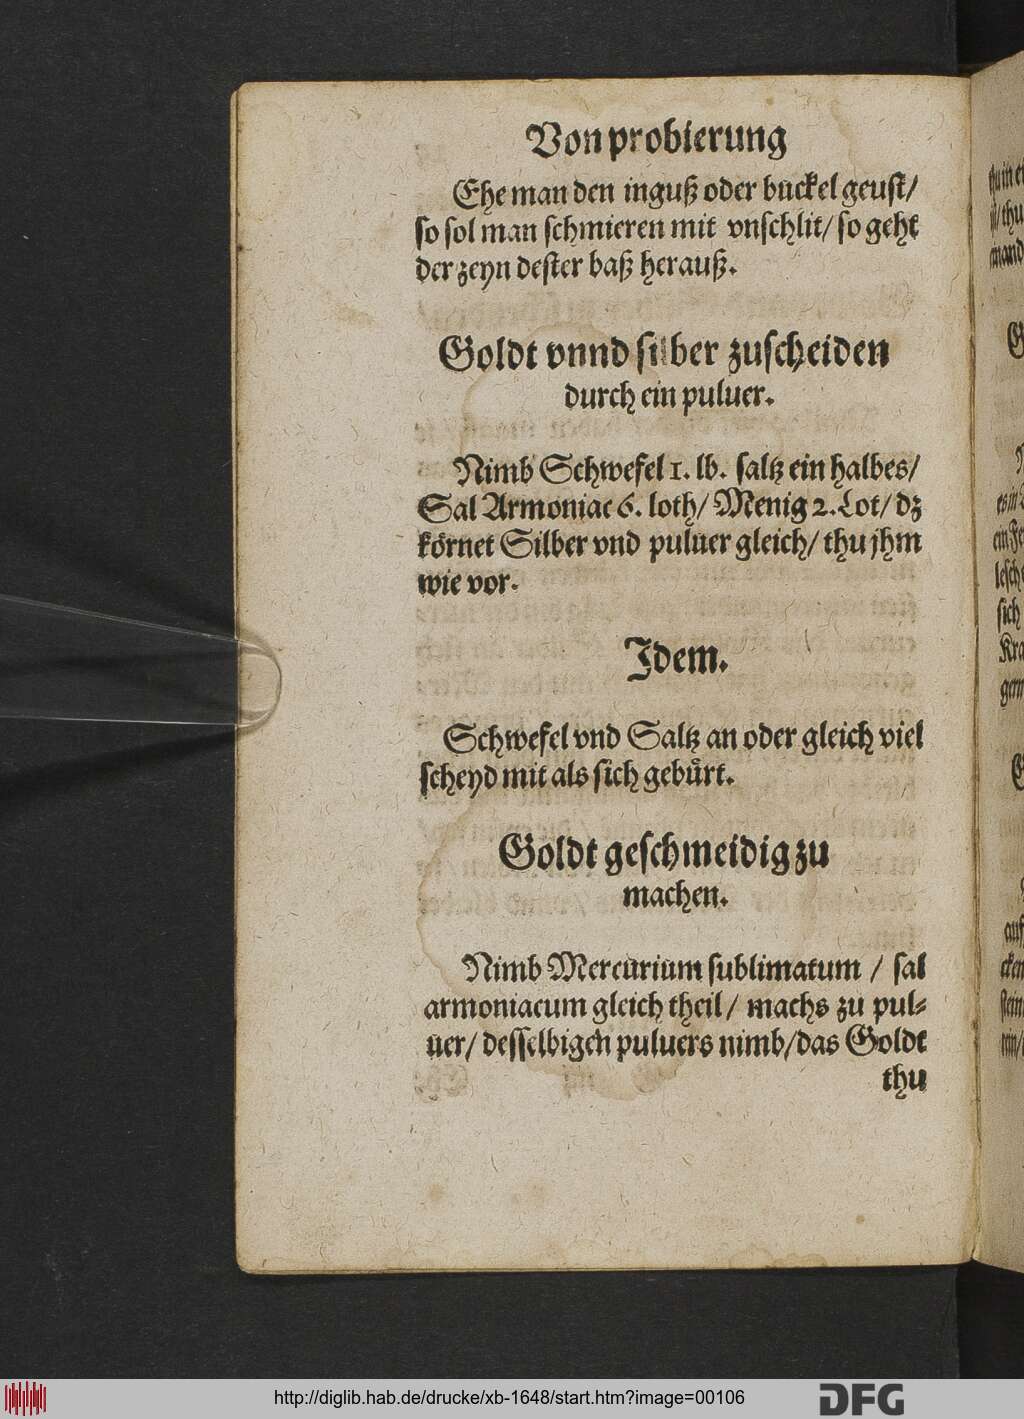 Von probierung
Ehe man den inguß oder buckel geust/
so sol man schmieren mit vnschlit/ so geht
der zeyn dester baß herauß.
Goldt vnnd silber zuscheiden
durch ein puluer.
Nimb Schwefel 1. lb. saltz ein halbes/
Sal Armoniac 6. loth/ Menig 2. Lot/ dz
körnet Silber vnd puluer gleich/ thu jhm
wie vor.
Idem.
Schwefel vnd Saltz an oder gleich viel
scheyd mit als sich gebürt.
Goldt geschmeidig zu
machen.
Nimb Mercurium sublimatum / sal
armoniacum gleich theil/ machs zu pul-
uer/ desselbigen puluers nimb/ das Goldt
thu
http://diglib.hab.de/drucke/xb-1648/start.htm?image=00106
DFG